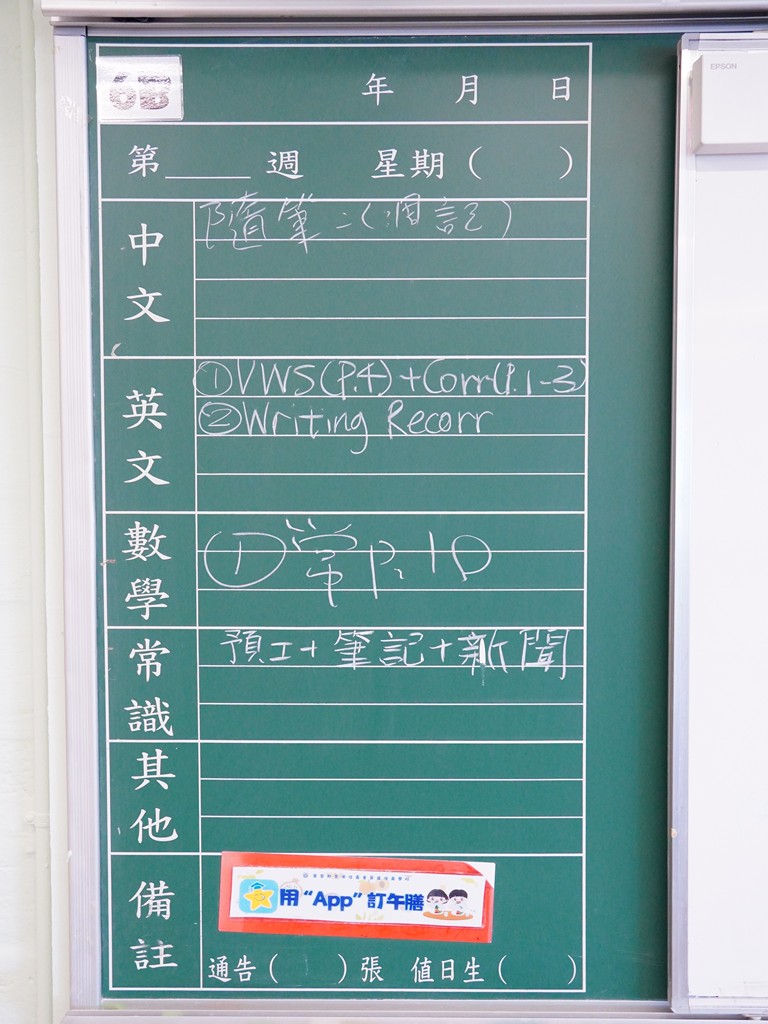 6B
年 月 日
EPSON
第____週 星期( )
中文
隨筆二(週記)
英文
①VWS(P.4)+Corr(P.1-3)
②Writing Recorr
數學
①堂P.10
常識
預工+筆記+新聞
其他
備註
用“App”訂午膳
通告( )張 值日生( )